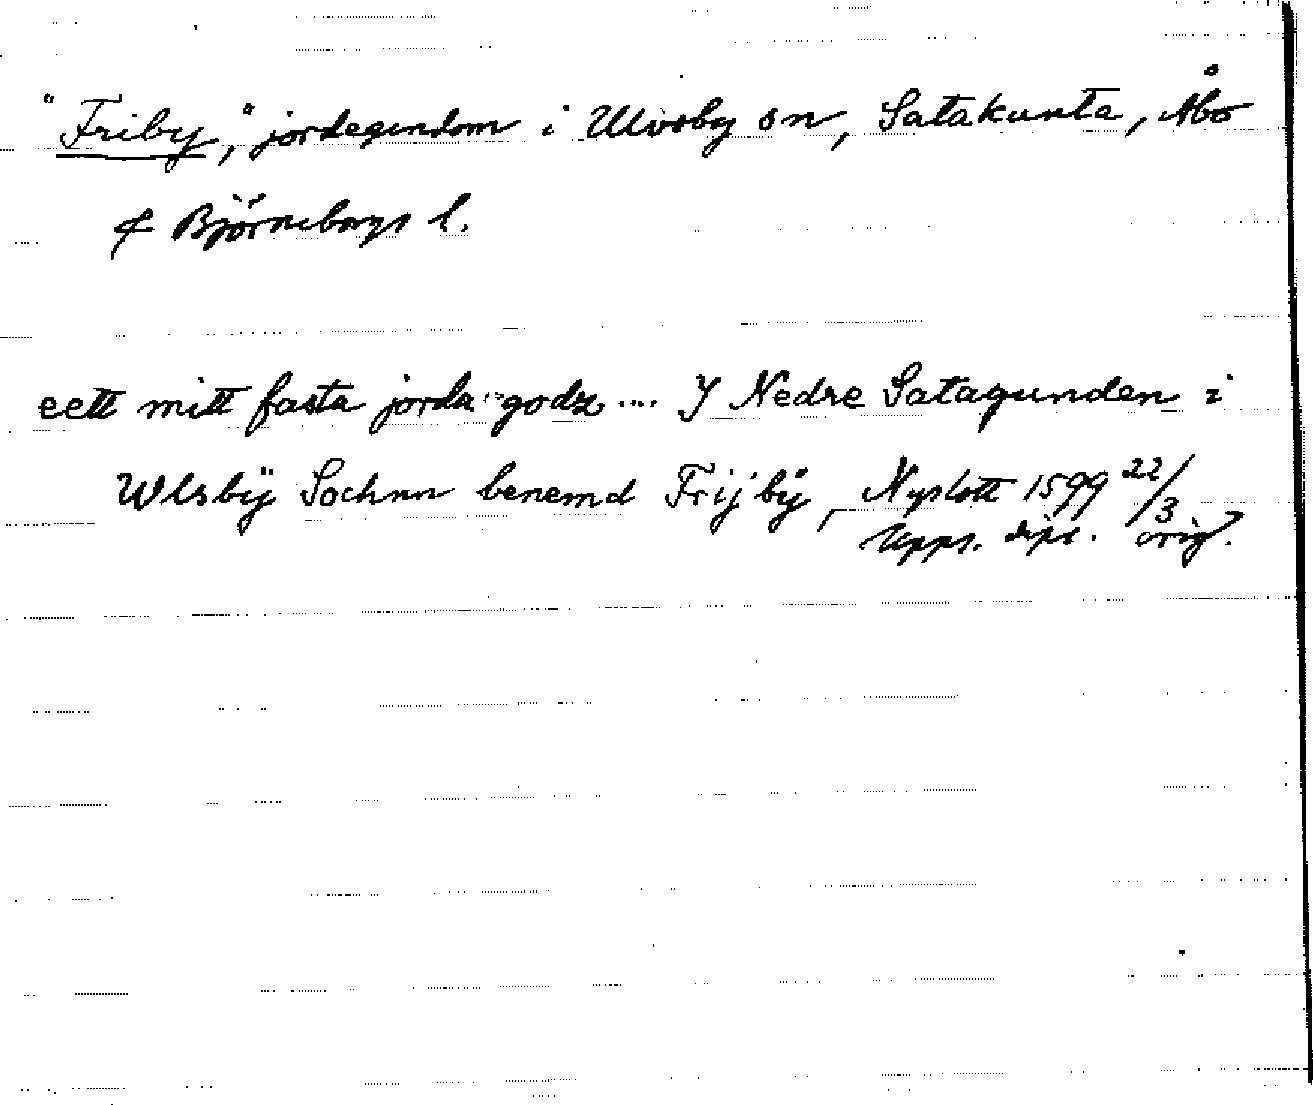 "Friby," jordegendom i Ulvsby sn, Satakunta, Åbo
& Björneborgs l.
eett mitt fasta jorda godz .... J Nedre Satagunden i
Wlsbÿ Sochnn benemd Frijbÿ, Nyslott 1599 22/3
Upps. dipl. orig.